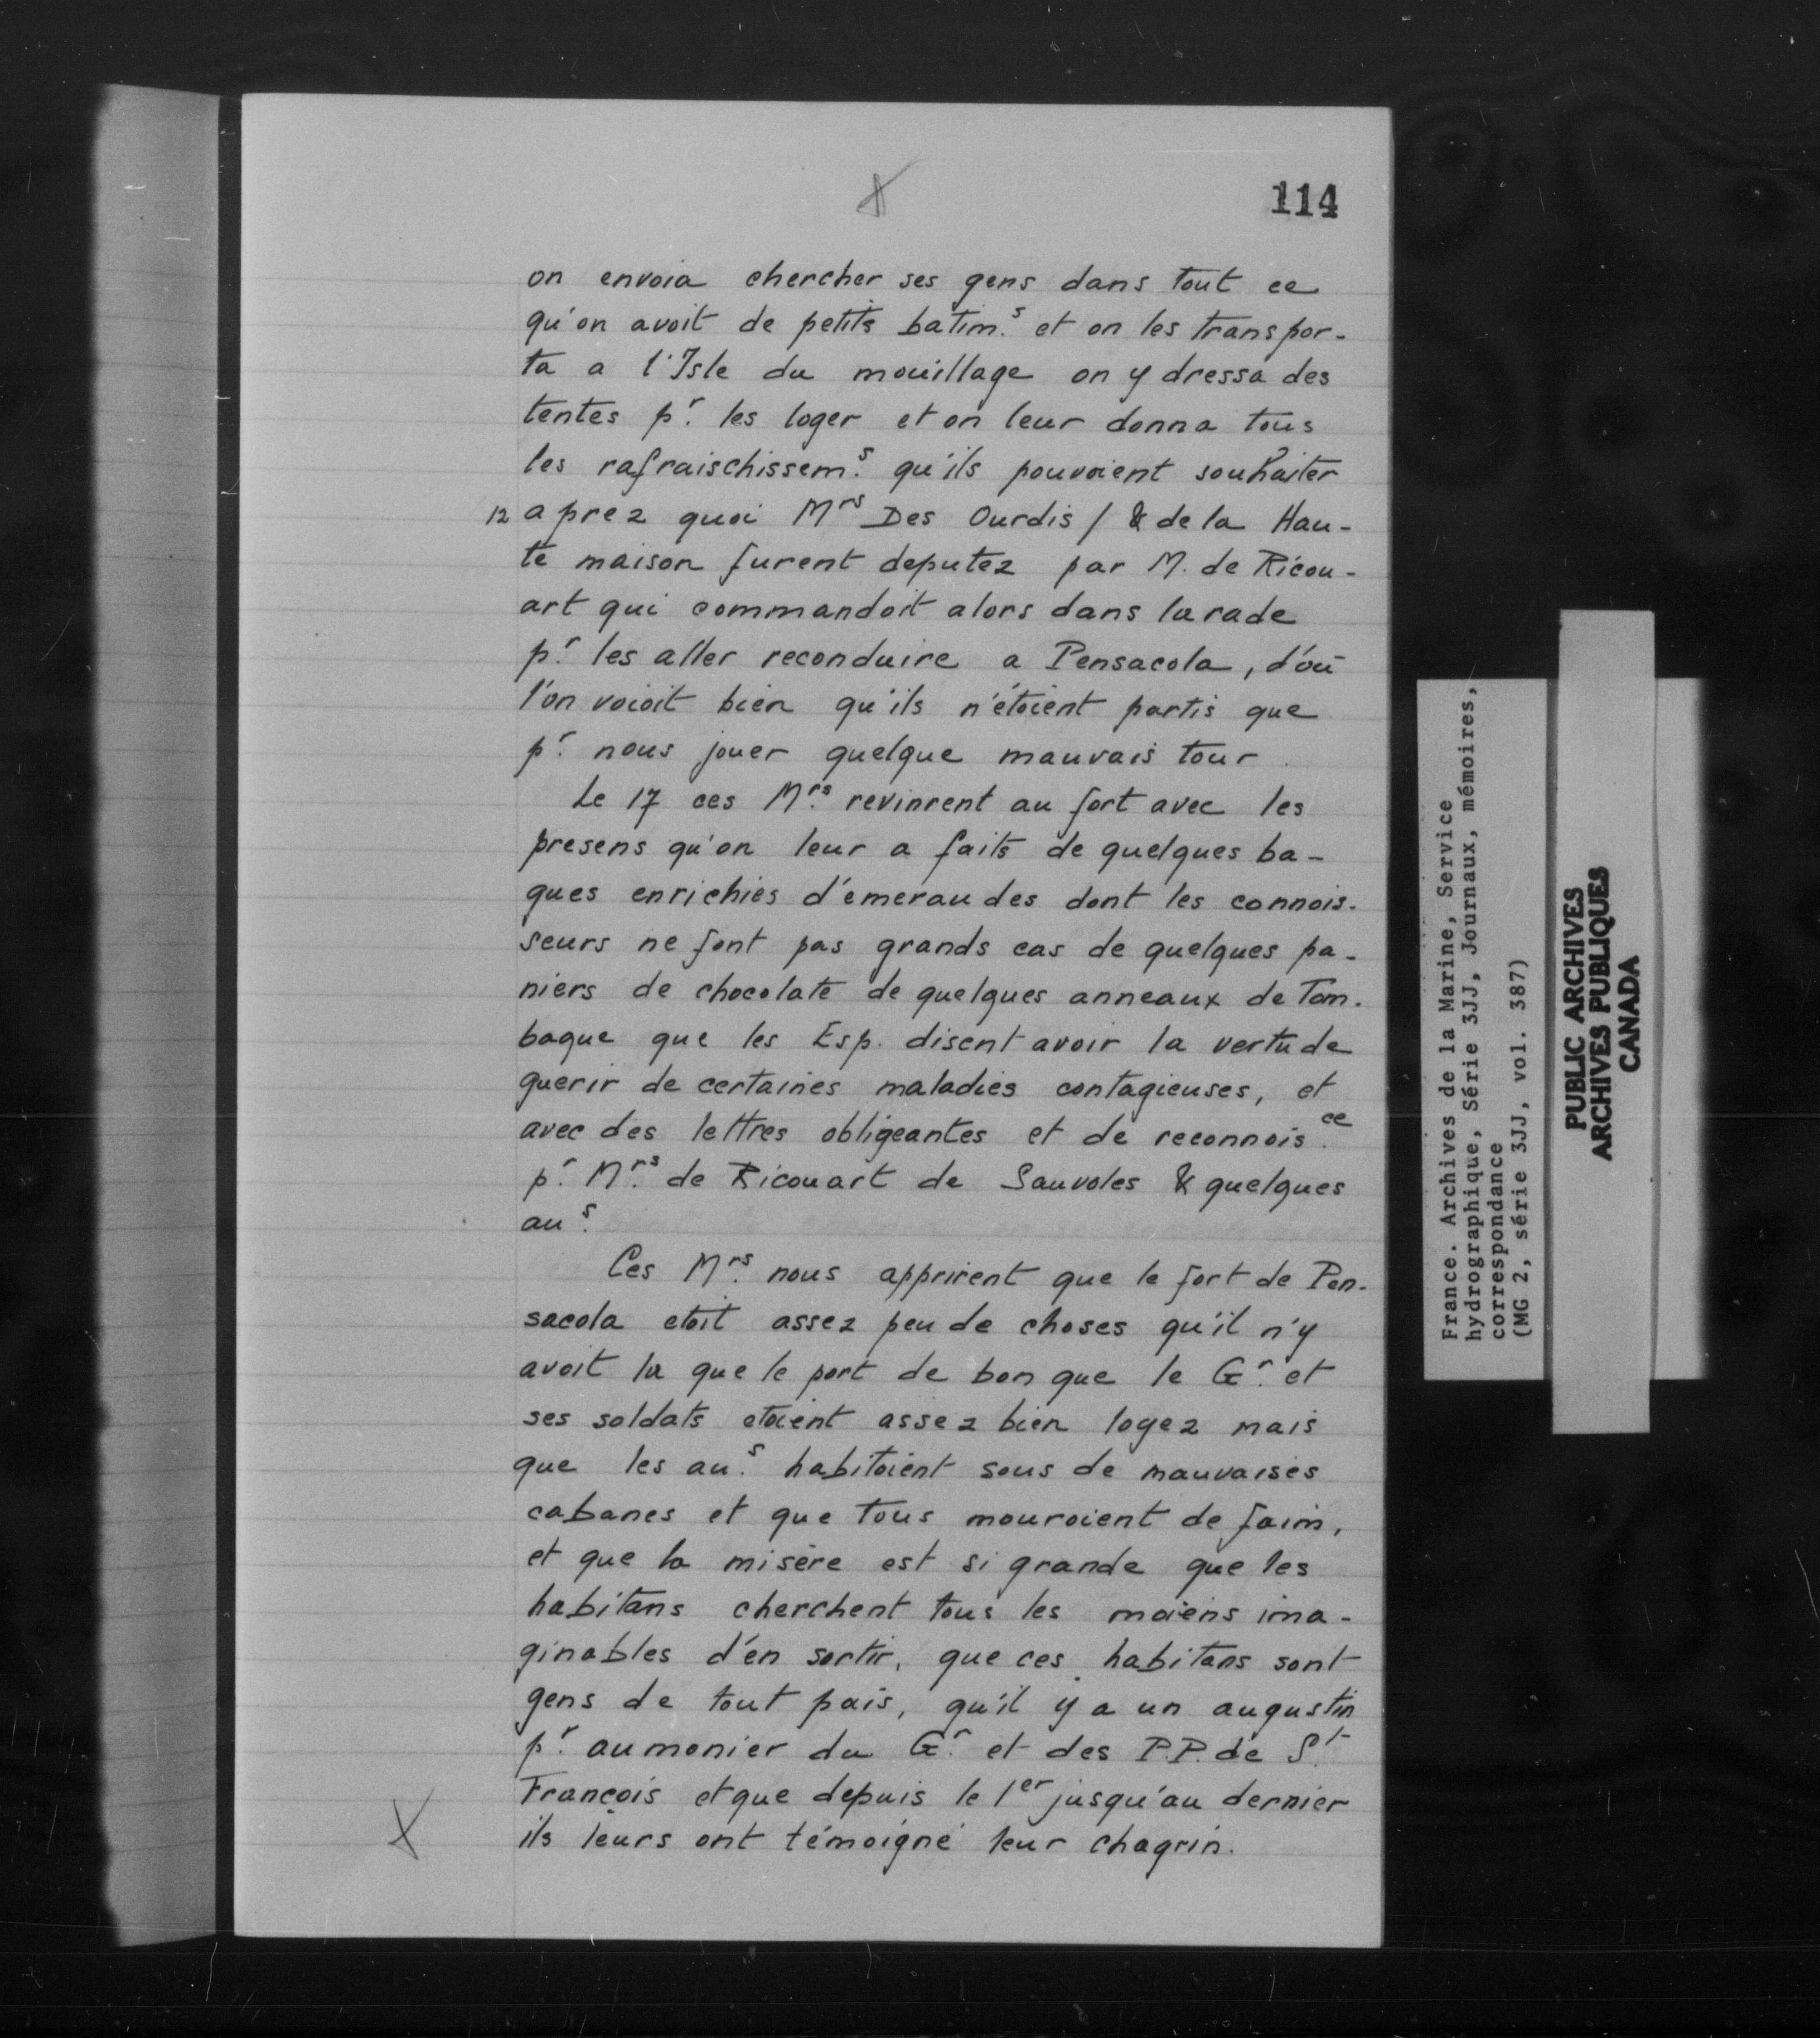 114
on envoia chercher ses gens dans tout ce
qu'on avoit de petits batim.s et on les transpor-
ta a l'Isle du mouillage on y dressa des
tentes p.r les loger et on leur donna tous
les rafraischissem.s qu'ils pouvoient souhaiter
12 aprez quoi Mrs Des Ourdis / & de la Hau-
te maison furent deputez par M. de Ricou-
art qui commandoit alors dans la rade
p.r les aller reconduire a Pensacola, d'où
l'on voioit bien qu'ils n'étoient partis que
p.r nous jouer quelque mauvais tour.
Le 17 ces M.rs revinrent au fort avec les
presens qu'on leur a faits de quelques ba-
gues enrichies d'émeraudes dont les connois-
seurs ne font pas grands cas de quelques pa-
niers de chocolate de quelques anneaux de Tom-
baque que les Esp. disent avoir la vertu de
guerir de certaines maladies contagieuses, et
avec des lettres obligeantes et de reconnois.ce
p.r M.rs de Ricouart de Sauvoles & quelques
au.s
Ces M.rs nous apprirent que le fort de Pen-
sacola etoit assez peu de choses qu'il n'y
avoit la que le port de bon que le G.r et
ses soldats etoient assez bien logez mais
que les au.s habitoient sous de mauvaises
cabanes et que tous mouroient de faim,
et que la misère est si grande que les
habitans cherchent tous les moiens ima-
ginables d'en sortir, que ces habitans sont
gens de tout pais, qu'il y a un augustin
p.r aumonier du G.r et des P.P. de S.t
François et que depuis le 1er jusqu'au dernier
ils leurs ont témoigné leur chagrin.
France. Archives de la Marine, Service
hydrographique, Série 3JJ, Journaux, mémoires,
correspondance
(MG 2, série 3JJ, vol. 387)
PUBLIC ARCHIVES
ARCHIVES PUBLIQUES
CANADA